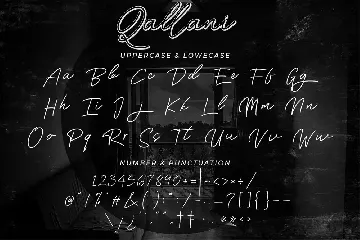 Qallani
UPPERCASE & LOWECASE
Aa Bb Cc Dd Ee Ff Gg
Hh Ii Jj Kk Ll Mm Nn
Oo Pq Rr Ss Tt Uu Vv Ww
NUMBER & PUNCTUATION
1234567890